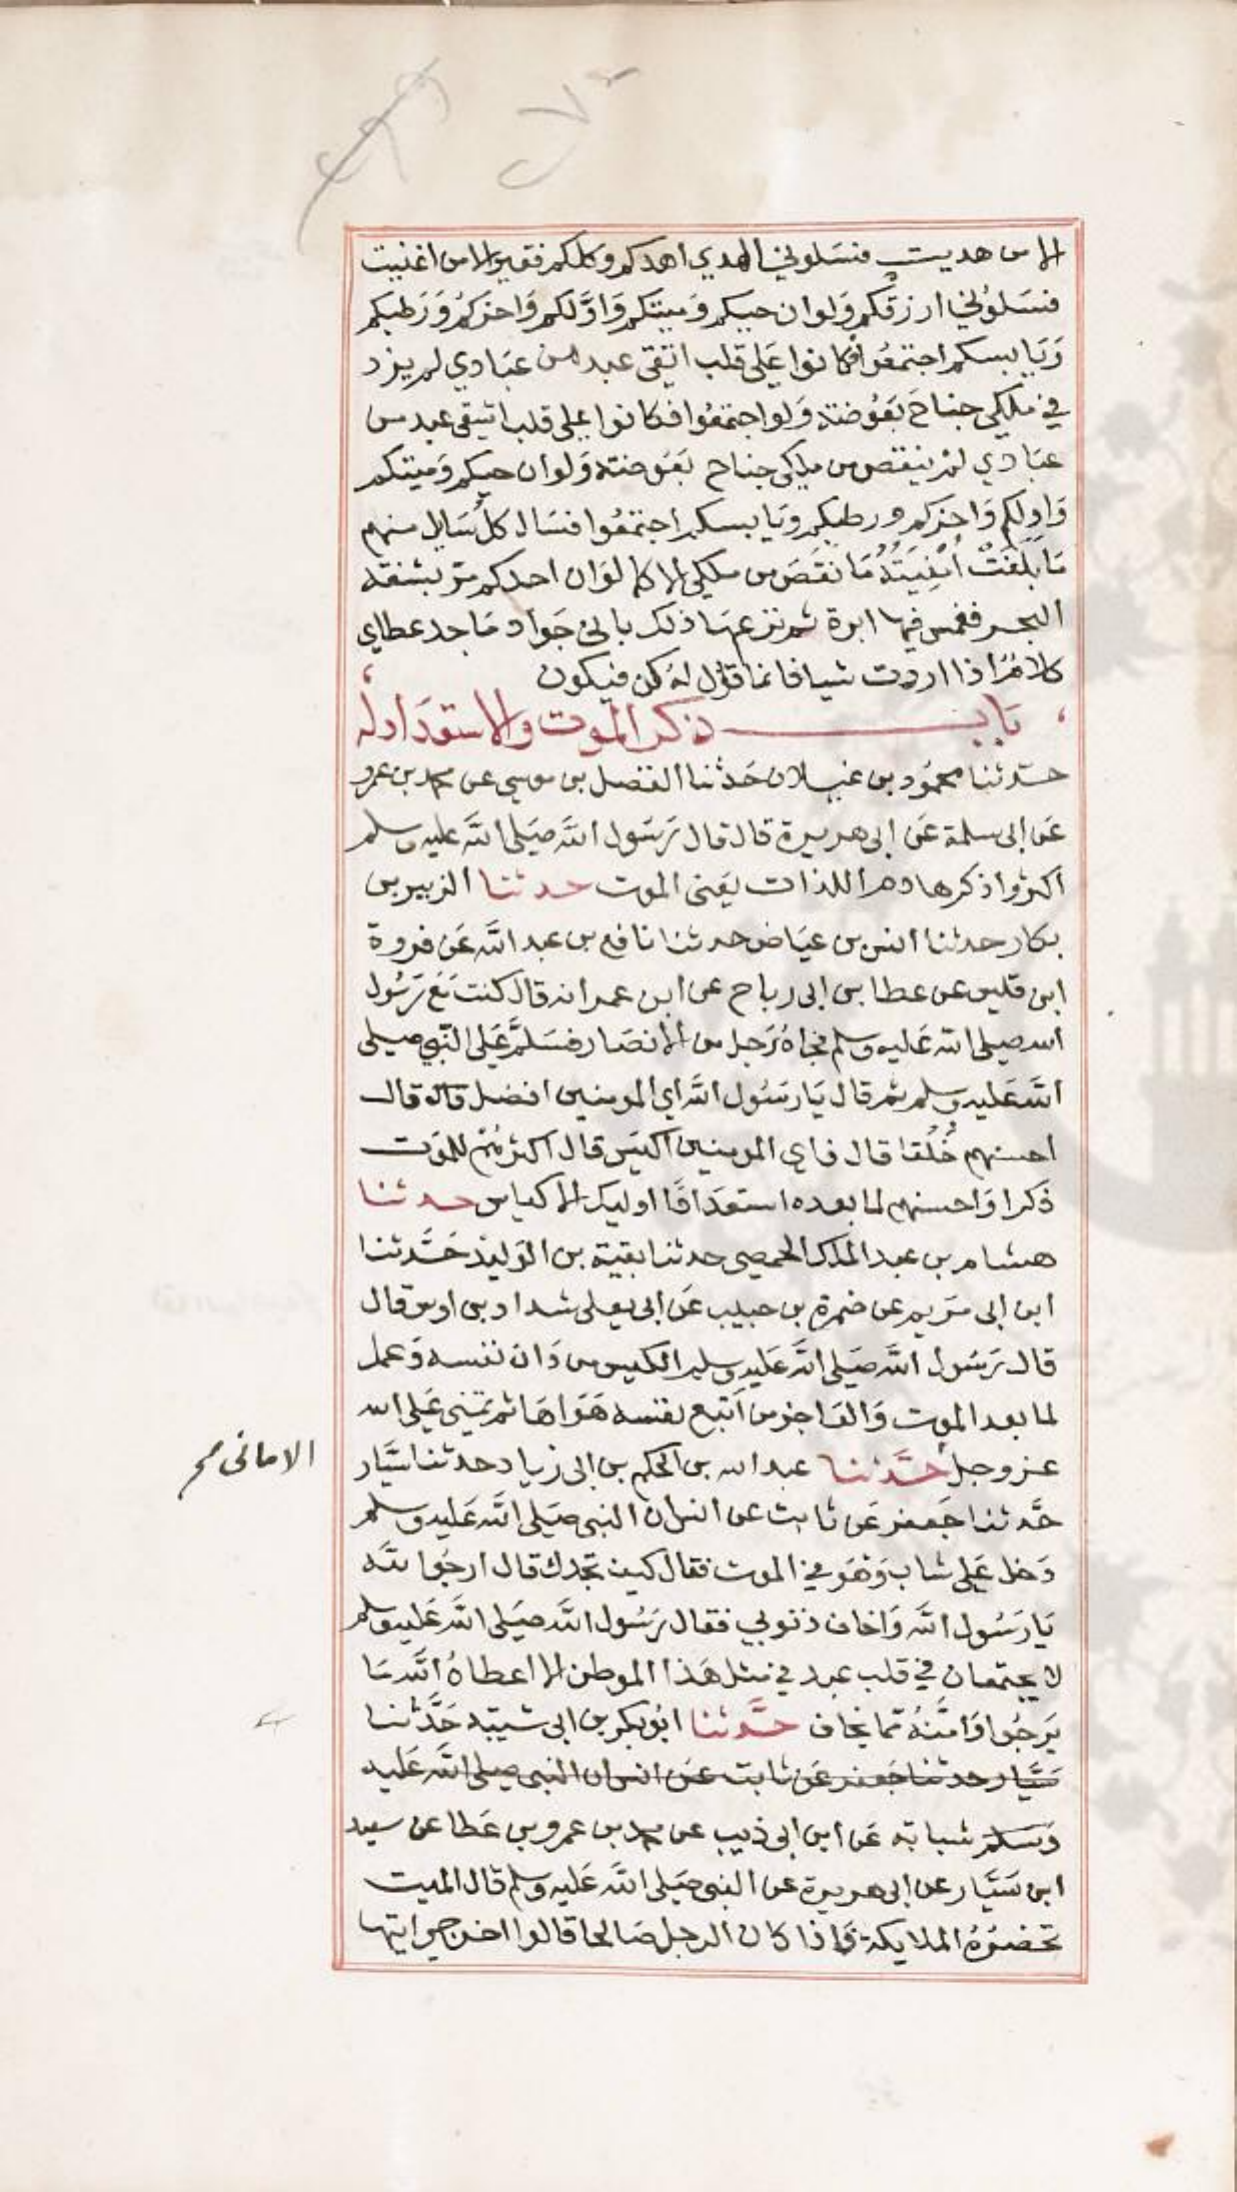 الا من هديت فسلوني الهدي اهدكم وكلكم فقير الا من اغنيت
فسَلوُني ارزقكم وَلوان حيكم وَميتكم وَاوَّلكم وَاخركُم وَرَطبكم
وَيَابسكم اجتمعُوا فكانوا عَلى قلب اتقى عبد من عبَادي لم يزد
في ملكي جناحَ بَعُوضَة وَلو اجتمعُوا فكانوا على قلب اشقى عبد من
عبَادي لمْ ينقص من ملكي جناح بَعَوضة وَلوان حيكم وَميتكم
وَاولكم وَاخركم ورطبكم ويَابسكم اجتمَعُوا فسَال كلُ سَايل منهم
مَا بَلغَتْ اُمْنِيَتَهُ مَا نَقَصَ من ملكي الا كما لوَان احدكم مرّ بشفة
البحر فغمس فيها ابرة ثم نزعهَا ذلك باني جَواد مَاجد عطاي
كلام اذا اردت شيا فانما قوْل لهُ كن فيكون
بَاب ذكر الموت والاستعدَاد له
حدثنا محمُود بن غيلان حَدثنا الفضل بن موسي عن محمد بن عمرو
عَن ابى سلمة عَن ابى هريرة قال قال رَسَول اللَّه صَلى اللَّه عليه وسلم
اكثروا ذكر هادم اللذات يَعنى الموت حدثنا الزبير بن
بكار حدثنا انس بن عيَاض حدثنا نافع بن عبد اللَّه عَن فروة
ابن قليس عن عطا بن ابى رباح عن ابن عمر انه قال كنت مَعَ رَسُول
الله صلى الله عَليه وسلم فجاهُ رَجل من الانصَار فسَلَّم عَلى النّبي صلى
اللَّه عَليه وسلم ثم قال يَا رسَوُل اللَّه اي المومنين افضل قال قال
احسنهم خُلُقا قال فاي المومنين اكيَس قال اكثرهُمْ للموَت
ذكرا وَاحسنهم لما بعده استعدَادًا اوليك الاكياس حدثنا
هشام بن عبد الملك الحمصي حدثنا بقية بن الوَليد حَدَّثنا
ابن ابى مرَيم عن ضمرة بن حبيب عَن ابى يعلى شداد بن اوس قال
قال رَسَول اللَّه صَلى اللَّه عَليه وسلم الكيس من دَان نفسه وَعمل
لما بعد الموت وَالفَاجر من اَتبع نفسه هَوَاهَا ثم تمَنى عَلى الله
عز وجل حَدَّثنا عبد الله بن الحكم بن ابى زياد حدثنا سَيَّار
الامانى صح
حَدثنا جَعفر عَن ثابت عن انس ان النبى صَلى اللَّه عَليه وسلم
دَخل عَلى شاب وَهُوَ في الموت فقال كيف تجدك قال ارجُوا للَّه
يَا رسُول اللَّه وَاخاف ذنوبي فقال رَسُول اللَّه صَلى اللَّه عَليه وسلم
لا يجتمعان في قلب عبد في مثل هَذا الموطن الا اعطاهُ اللَّه مَا
يَرجُوا وَامَّنَهُ مما يخاف حَدَّثنا ابُو بكر بن ابى شيبة حَدَّثنا
سَيَّار حدثنا جَعفر عَن ثابت عَن انس ان النبى صلى اللَّه عَليه
وَسَلم شبابه عَن ابن ابى ذيب عن محمد بن عمرو بن عَطا عن سعيد
ابن سَيَّار عن ابى هريرة عن النبى صَلى اللَّه عَليه وسلم قال الميت
تحضرُهُ الملايكة فَاذا كان الرجل صَالحا قالوا اخرجي ايتها